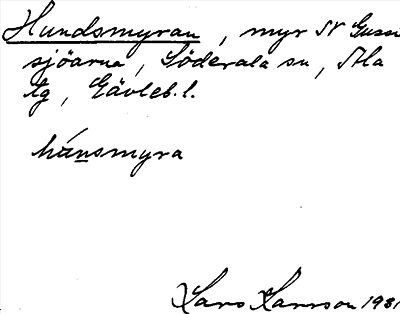 Hundsmyran, myr N Gussi
sjöarna, Söderala sn, Ala
tg, Gävleb.l.
húnsmyra
Lars Larsson 1981